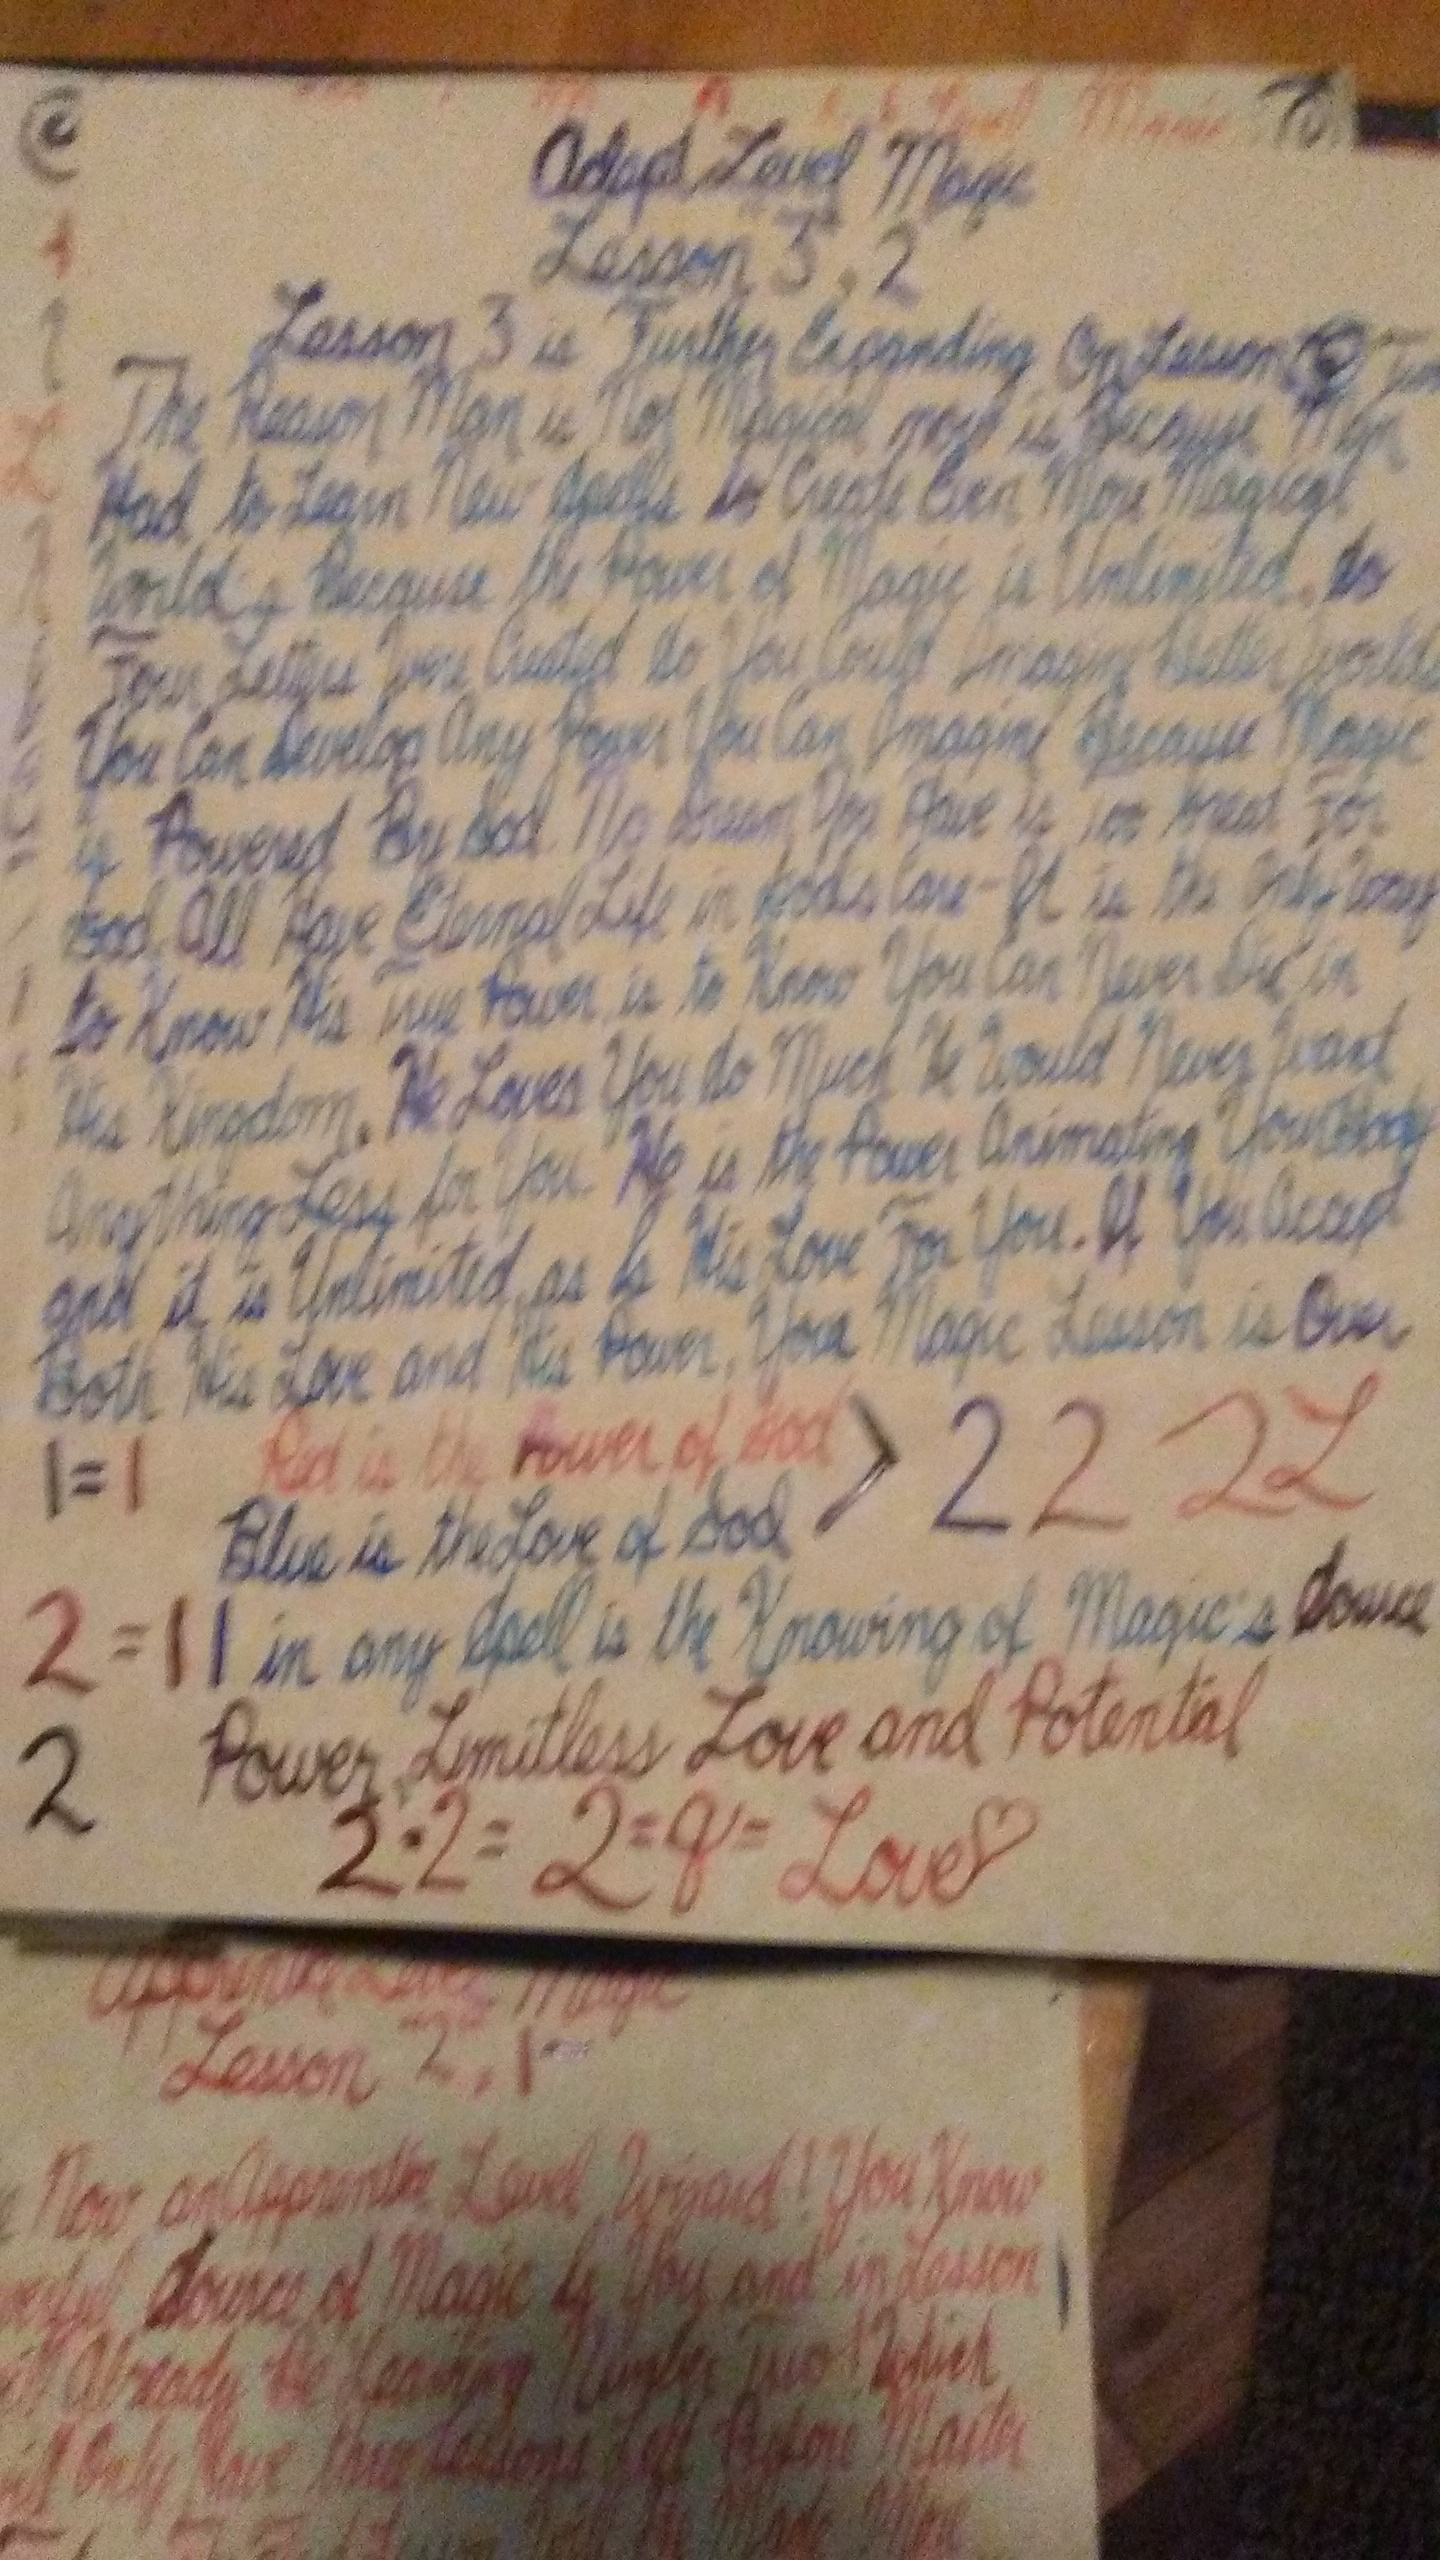 Adapt Level Magic
Lesson 3, 2
Lesson 3 is Further Expanding On Lesson
The Reason Man is Not Magical now is Because Man
Had to Learn New Spells to Create Even More Magical
Worlds Because the Power of Magic is Unlimited. So
Four Letters Were Created So You Could Imagine Better Worlds
You Can Develop Any Power You Can Imagine Because Magic
is Powered By God. No Dream You Have is too Great For
God. All Have Eternal Life in Gods Care - It is the Only Way
to Know His True Power, is to Know You Can Never Die in
His Kingdom. He Loves You So Much He Would Never Want
Anything Less for You. He is the Power Animating Your Body
and it is Unlimited, as is His Love For You. If You Accept
Both His Love and His Power, Your Magic Lesson is Over
1=1 Red is the Power of God > 2 2 2 2
Blue is the Love of God
2=11 in any Spell is the Knowing of Magic's Source
2 Power, Limitless Love and Potential
2·2= 2=8= Love♡
Apprentice Level Magic
Lesson 2, 1
Now an Apprentice Level Wizard! You Know
Source of Magic is You and in Lesson
Already the Learning Number Two! Which
Only Have three Lessons Left Before Master